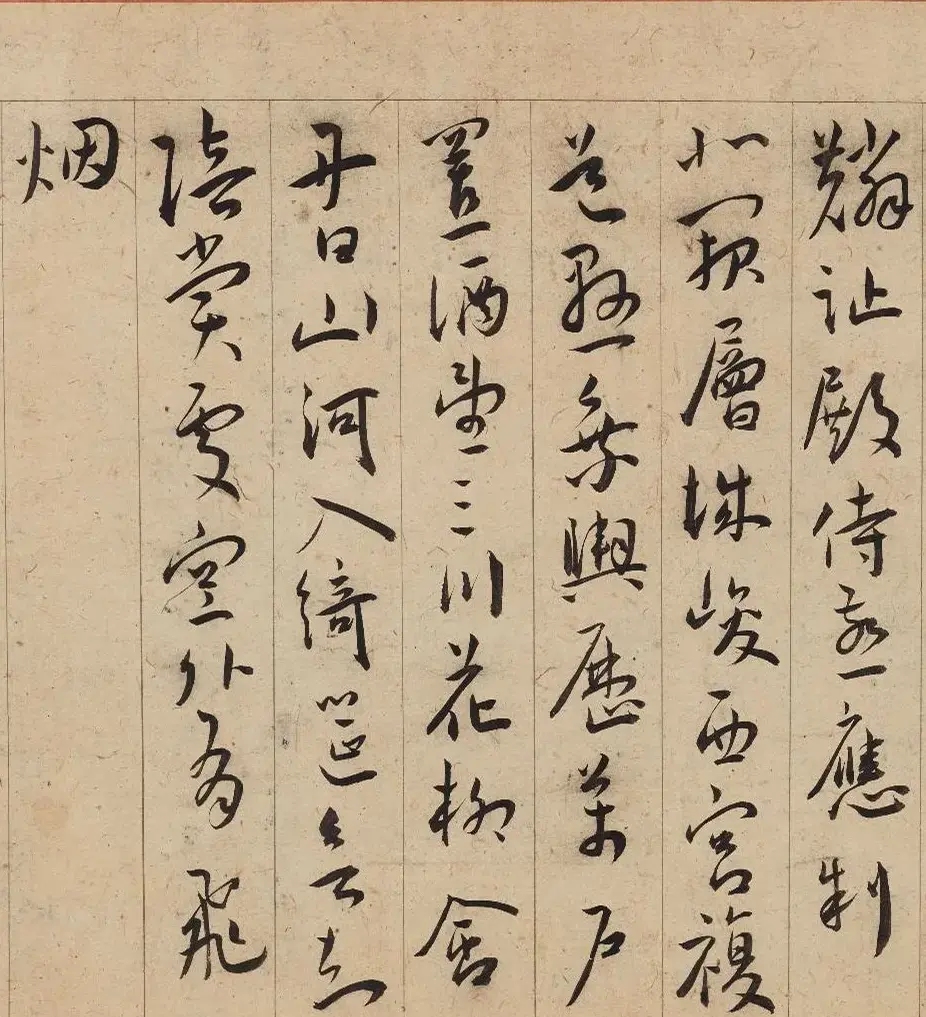 麟趾殿侍宴應制
北闕層城峻西宮複
道懸乘輿歷萬戶
置酒望三川花柳含
丹日山河入綺筵欲知
陪賞處空外有飛
烟